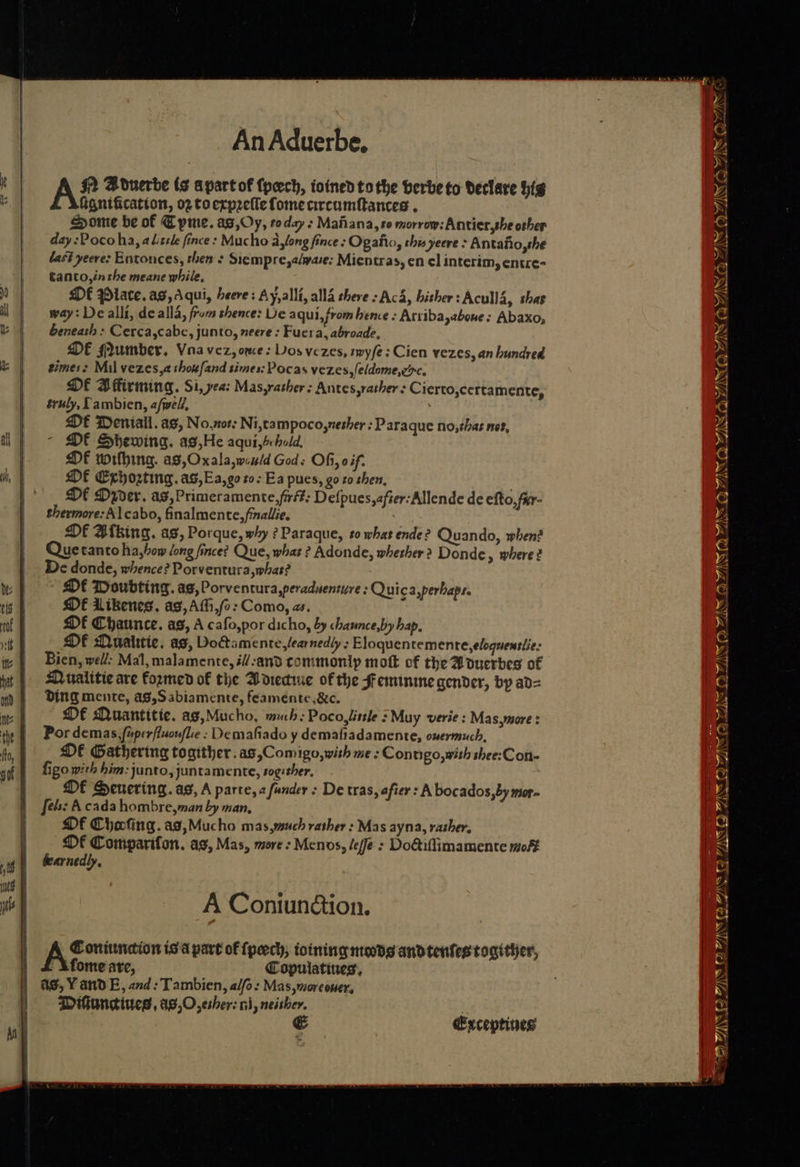 An Aduerbe.
AN Aduerbe is a part of speech, ioined to the verbe to declare his
signification, or to expresse some circumstances.
Some be of Tyme. as, Oy, to day : Mañana, to morrow: Antier, the other
day: Poco ha, a litle since : Mucho à, long since : Ogaño, this yeere : Antaño, the
last yeere: Entonces, then : Siempre, alwaie: Mientras, en el interim, entre-
tanto, in the meane while.
Of Place. as, Aqui, heere : Ay, allí, allá there : Acá, hither : Acullá, that
way: De allí, de allá, from thence: De aqui, from hence : Arriba, aboue : Abaxo,
beneath : Cerca, cabe, junto, neere : Fuera, abroade.
Of Number. Vna vez, once: Dos vezes, twyse : Cien vezes, an hundred
times: Mil vezes, a thousand times: Pocas vezes, seldome, &c.
Of Affirming. Si, yea: Mas, rather : Antes, rather : Cierto, certamente,
truly, Tambien, aswell.
Of Deniall. as, No, not: Ni, tampoco, nether : Paraque no, that not.
Of Shewing. as, He aqui, behold.
Of wishing. as, Oxala, would God: Osi, o if.
Of Exhorting. as, Ea, go to: Ea pues, go to then.
Of Order. as, Primeramente, first: Despues, after: Allende de esto, fur-
thermore: Al cabo, finalmente, finallie.
Of Asking. as, Porque, why ? Paraque, to what ende? Quando, when?
Que tanto ha, how long since? Que, what ? Adonde, whether ? Donde, where?
De donde, whence? Porventura, what?
Of Doubting. as, Porventura, peraduenture : Quiça, perhaps.
Of Likenes. as, Assi, so : Como, as.
Of Chaunce. as, A caso, por dicho, by chaunce, by hap.
Of Qualitie. as, Doctamente, learnedly : Eloquentemente, eloquentlie:
Bien, well: Mal, malamente, ill: and commonly most of the Aduerbes of
Qualitie are formed of the Adiectiue of the Feminine gender, by ad-
ding mente, as, Sabiamente, feamente, &c.
Of Quantitie. as, Mucho, much: Poco, little : Muy verie : Mas, more :
Por demas, superfluouslie : Demasiado y demasiadamente, ouermuch.
Of Gathering togither. as, Comigo, with me : Contigo, with thee: Con-
sigo with him: junto, juntamente, togither.
Of Seuering. as, A parte, a sunder : De tras, after : A bocados, by mor-
sels: A cada hombre, man by man.
Of Choosing. as, Mucho mas, much rather : Mas ayna, rather.
Of Comparison. as, Mas, more : Menos, lesse : Doctissimamente most
learnedly.
A Coniunction.
A Coniunction is a part of speech, ioining moods and tenses togither,
some are, Copulatiues,
as, Y and E, and : Tambien, also : Mas, moreouer.
Disiunctiues, as, O, ether: ni, neither.
E Exceptiues